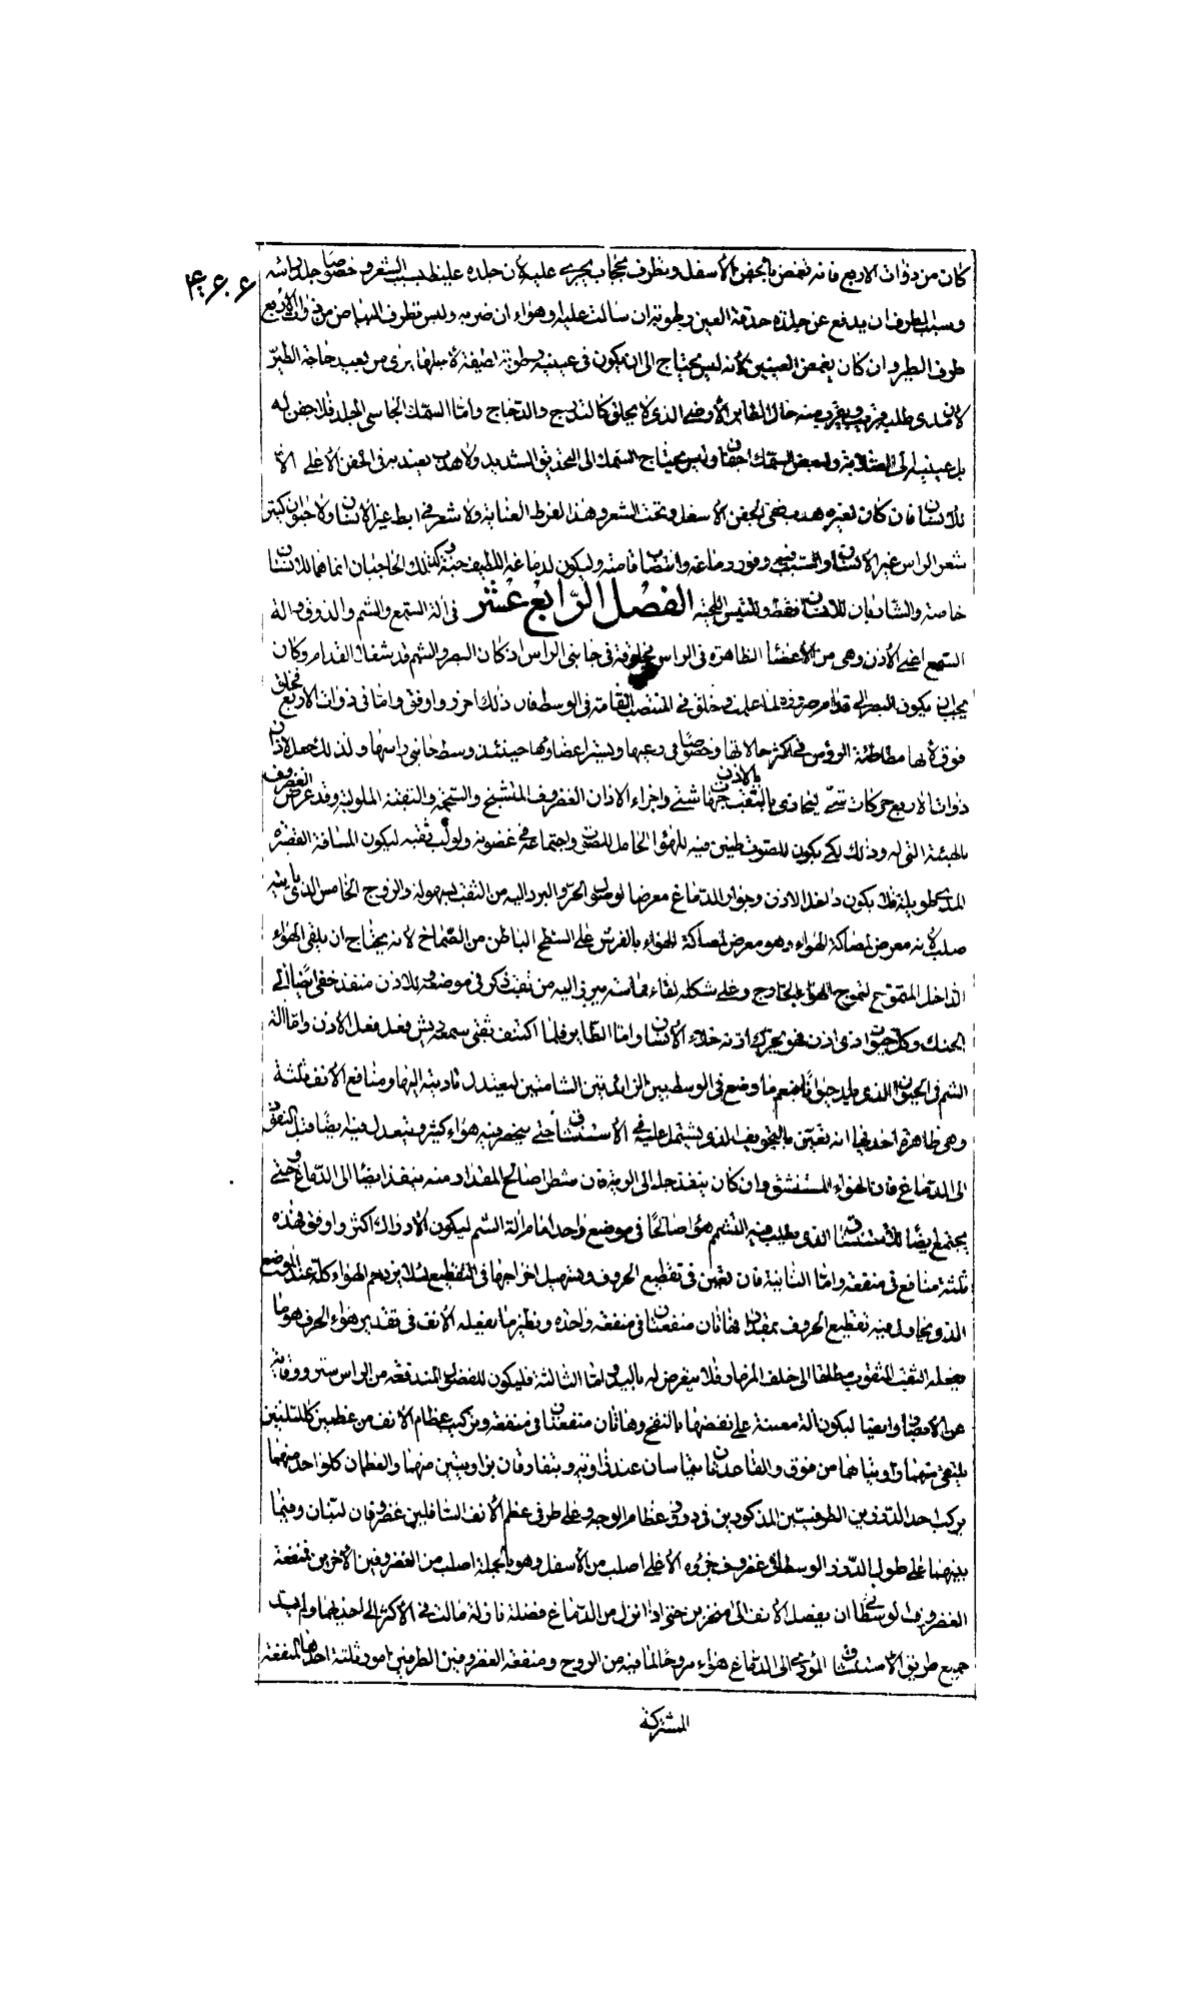 كان من ذوات الاربع فانه تغمض بالجفن الأسفل وتطرف بحجاب يجرى عليه لأن جلده غليظ بسبب الشعر وخصوصا جلد راسه
۴۰۶۶
وسبب الطرف ان يدفع عن جلدة حدقة العين رطوبة ان سالت عليه او هواء ان ضربه وليس تطرف من ذوات الأربع
طرف الطير وان كان يغمض العينين لأنه ليس يحتاج الى ان يكون فى عينيه رطوبة لطيفة يرى من بعيد حاجة الطير
لأن مدى طلبه قريب ويقرب منه حال الطاير الأرضى الذى لا يحلق كالتدرج والدجاج وامّا السمك الجاسى الجلد فلا جفن له
بل عينيه الى الصلابة ولبعض السمك اجفان وليس يحتاج السمك الى التحديق الشديد ولا هدب بعينيه فى الجفن الأعلى الّا
للأنسان فان كان لغيره هدب ففى الجفن الأسفل وتحت الشعر وهذا لفرط العناية ولا شعر فى ابط غير الأنسان ولا حيوان كثير
شعر الراس غير الأنسان والسبب فيه وفور دماغه وانتصاب قامته وليكون لدماغه اللطيف جنة وكذلك الحاجبان انما هما للانسان
خاصة والشاربان للانسان فقط وللتيس اللحية الفصل الرّابع عشر فى آلة السّمع والشم والذوق آلة
السّمع اعنى الأذن وهى من الأعضا الظاهرة فى الراس مخلوقة فى جانبى الراس اذ كان البصر والشم قد شغلا القدام وكان
يجب ان يكون البصر الى قدام مصروفة لما علمت وخلق فى المنتصب القامة فى الوسط فان ذلك احرز واوفق وامّا فى ذوات الاربع فخلق
فوق لأنها مطاطئة الرؤس فى اكثر حالاتها وخصوصا فى رعيها ويستر اعضاؤها حينئذ وسط جانبى راسها ولذلك جعل لاذان
ذوات الاربع حركات شتى يحاذى بالثقب بالاذن جهات شتى واجزاء الاذان الغضروف المتشنج والشحمة والثقبة الملولبة وقد عرض الغضروف
بالهيئة التى له وذلك لكى يكون للصوت طنين فيه للهواء الحامل للصوت واجتماعه فى غضونه ولولب ثقبه ليكون المسافة القصيرة
المدى طويلة فلا يكون داخل الاذن وجوار الدماغ معرضا لوصول الحر والبرد اليه من الثقب بسهولة والزوج الخامس الذى ياتيه
صلب لأنه معرض لمصاكة الهواء وهو معرض لمصاكة الهواء بالفرش على السطح الباطن من الصّماخ لانه يحتاج ان يلقى الهواء
الداخل المتموّج لتموج الهواء الخارج وعلى شكله لقاء مماسة يبرز اليه من ثقب ذكر فى موضعه وللاذن منفذ خفى ايضا الى
الحنك وكل حيوان ذى اذن فهو يحرك اذنه خلا الأنسان وامّا الطاير فلما اكتفى بثقبى سمعه ريش فعل فعل الأذن وامّا آلة
الشم فى الحيوان الذى يلد حيوانا فنعم ما وضع فى الوسط بين الزائدتين الشامتين ليعتدل تاديته اليها ومنافع الأنف ثلثة
وهى ظاهرة احدها انه تعين بالتجويف الذى يشتمل عليه فى الأستنشاق حتى ينحصر فيه هواء كثير ويتعدل فيه ايضا قبل النفوذ
الى الدماغ فان الهواء المستنشق وان كان ينفذ جله الى الرية فان شطرا صالح المقدار منه ينفذ ايضا الى الدّماغ وحتى
يجتمع ايضا للأستنشاق الذى يطلب فيه التشمم هواء صالحا فى موضع واحد امام آلة الشم ليكون الادراك اكثر واوفق فهذه
ثلثة منافع فى منفعة وامّا الثانية فان تعين فى تقطيع الحروف وتسهيل اخراجها فى التقطيع لئلا يزدحم الهواء كله عند الموضع
الذى يحاول فيه تقطيع الحروف بمقدار فهاتان منفعتان فى منفعة واحدة ونظير ما يفعله الأنف فى تقدير هواء الحرف هو ما
يفعله الثقب المثقوب مطلقا الى خلف المزمار فلا يتعرض له بالسد وامّا الثالثة فليكون للفضول المندفعة من الراس ستر ووقاية
عن الأبصار وايضا ليكون آلة معينة على نفضها بالنفخ وهاتان منفعتان فى منفعة وتركيب عظام الأنف من عظمين كالمثلثين
يلتقى منهما زاويتاهما من فوق والقاعدتان يتماسان عند زاوية ويتفارقان بزاويتين منهما والعظمان كل واحد منهما
يركب احد الدرزين الطرفيين المذكورين فى دروز عظام الوجه وعلى طرفى عظم الأنف السافلين غضروفان لينان وفيما
بينهما على طول الدّرز الوسطانى غضروف جزؤه الأعلى اصلب من الأسفل وهو بالجملة اصلب من الغضروفين الأخرين فمنفعة
الغضروف الوسطانى ان يفصل الأنف الى منخرين حتى اذا نزل من الدّماغ فضلة نازلة مالت فى الأكثر الى احدهما ولم يسد
جميع طريق الأستنشاق المؤدى الى الدماغ هواء مروحا لما فيه من الروح ومنفعة الغضروفين الطرفين امور ثلثة احدها المنفعة
المشتركة